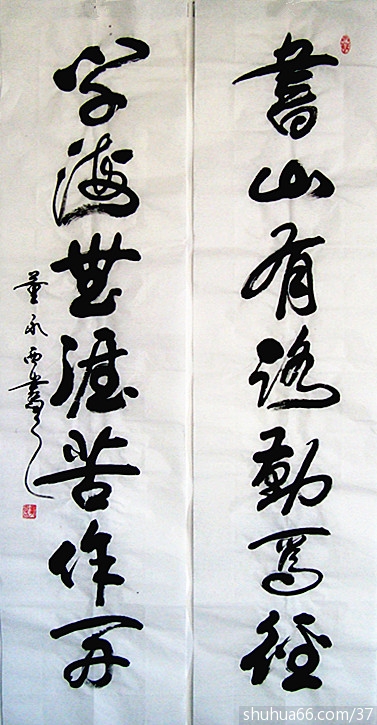 書山有路勤為徑
学海無涯苦作舟
董永西書
shuhua66.com/37